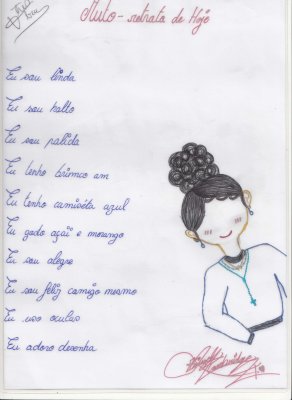 Auto-retrato de Hoje
Eu sou linda
Eu sou halto
Eu sou palida
Eu tenho brinmco am
Eu tenho camiseta azul
Eu godo açai e morango
Eu sou alegre
Eu sou feliz camigo mesmo
Eu uso oculus
Eu adoro desenha